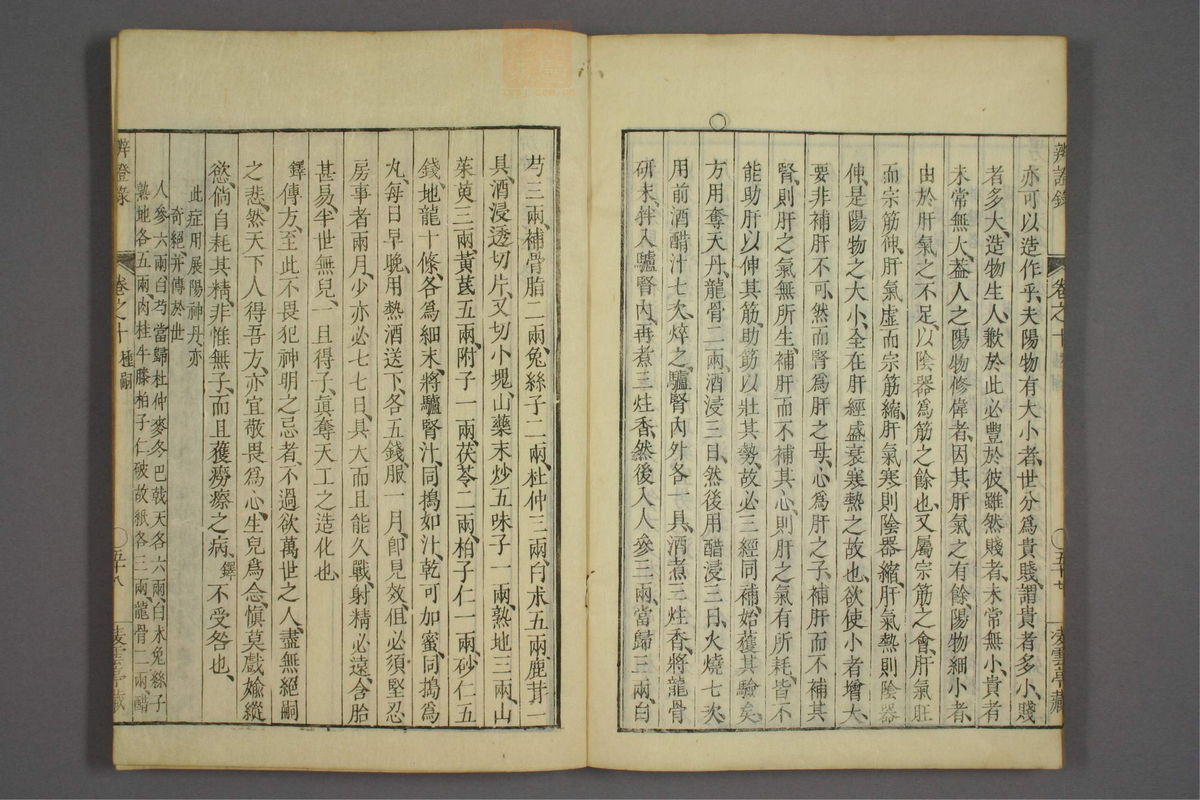 辨證錄 卷之十 五十七 菱雲亭藏
亦可以造作乎、夫陽物有大小者、世分爲貴賤、謂貴者多小、賤
者多大、造物生人、歉於此必豐於彼、雖然賤者、未常無小、貴者
未常無大、葢人之陽物修偉者、因其肝氣之有餘、陽物細小者、
由於肝氣之不足、以陰器爲筋之餘也、又屬宗筋之會、肝氣旺
而宗筋伸、肝氣虛而宗筋縮、肝氣寒則陰器縮、肝氣熱則陰器
伸、是陽物之大小、全在肝經盛衰寒熱之故也、欲使小者增大、
要非補肝不可、然而腎爲肝之母、心爲肝之子、補肝而不補其
腎、則肝之氣無所生、補肝而不補其心、則肝之氣有所耗、皆不
能助肝以伸其筋、助筋以壯其勢、故必三經同補、始獲其驗矣、
方用奪天丹、龍骨二兩、酒浸三日、然後用醋浸三日、火燒七次、
用前酒醋汁七次、焠之、驢腎內外各一具、酒煮三炷香、將龍骨
研末、拌入驢腎內、再煮三炷香、然後入人參三兩、當歸三兩、白
芍三兩、補骨脂二兩、兔絲子二兩、杜仲三兩、白朮五兩、鹿茸一
具、酒浸透切片、又切小塊、山藥末炒五味子一兩、熟地三兩、山
茱萸三兩、黃芪五兩、附子一兩、茯苓二兩、柏子仁一兩、砂仁五
錢、地龍十條、各爲細末、將驢腎汁、同搗如汁、乾可加蜜、同搗爲
丸、每日早晚、用熱酒送下、各五錢、服一月、卽見效、但必須堅忍
房事者兩月、少亦必七七日、具大而且能久戰、射精必遠、含胎
甚易、半世無兒、一旦得子、眞奪天工之造化也、
鐸傳方、至此不畏犯神明之忌者、不過欲萬世之人、盡無絕嗣
之悲、然天下人得吾方、亦宜敬畏爲心、生兒爲念、愼莫戲媮縱
慾、倘自耗其精、非惟無子、而且獲癆瘵之病、鐸不受咎也、
此症用展陽神丹、亦
奇絕、并傳於世
人參六兩白芍當歸杜仲麥冬巴戟天各六兩、白朮兔絲子
熟地各五兩、肉桂牛膝柏子仁破故紙各三兩、龍骨二兩、醋
辨證錄 卷之十 種嗣 五十八 菱雲亭藏